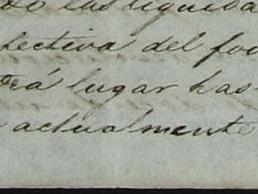 do las liquida
fectiva del fo
drá lugar has-
actualmente